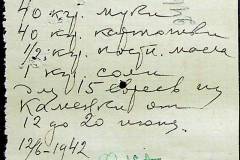 40 кг. муки
40 кг. картошки
1/2 кг. постн. масла
1 кг. соли
для 15 евреев из
Каменки от
12 до 20 июня.
12/6-1942